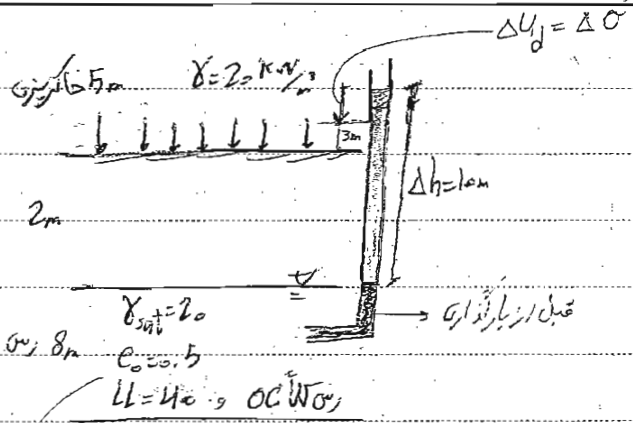 Δu_d = Δσ
خاکریزی 5m γ=20 KN/m³
3m
Δh=10m
2m
γsat=20
قبل از بارگذاری
رس 8m
e₀=0.5
رس OC